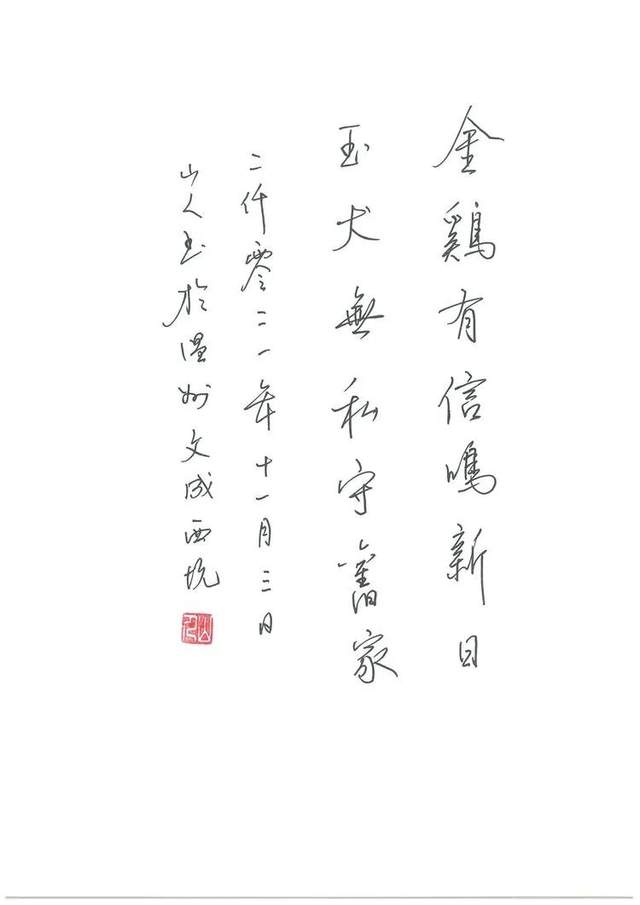 金鷄有信鳴新日
玉犬無私守舊家
二仟零二一年十一月三日
山人書於温州文成西坑